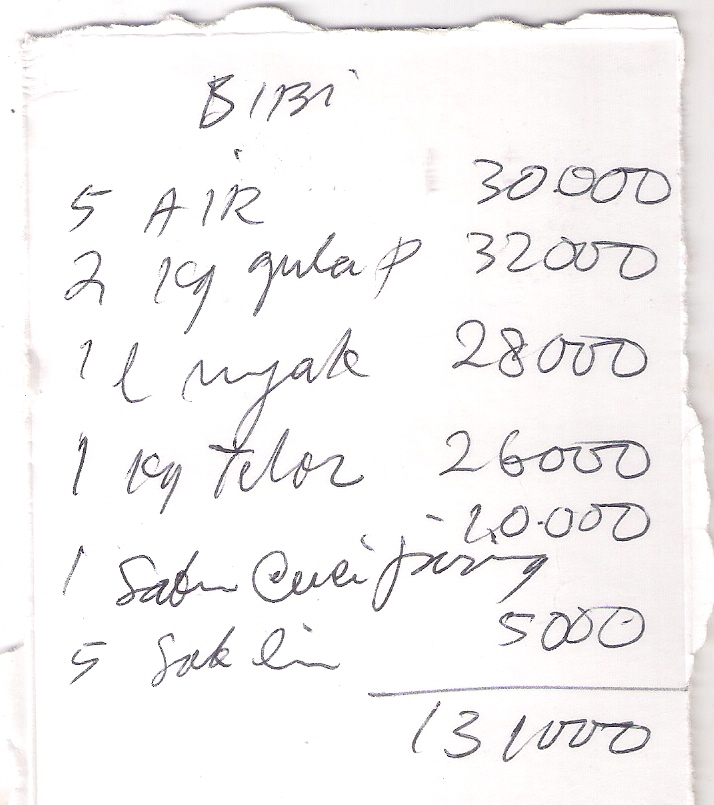 BIBi
5 AIR 30.000
2 Kg gula P 32000
1 l myak 28000
1 Kg Telor 26000
1 Sabun Cuci piring 10.000
5 Soklin 5000
131000